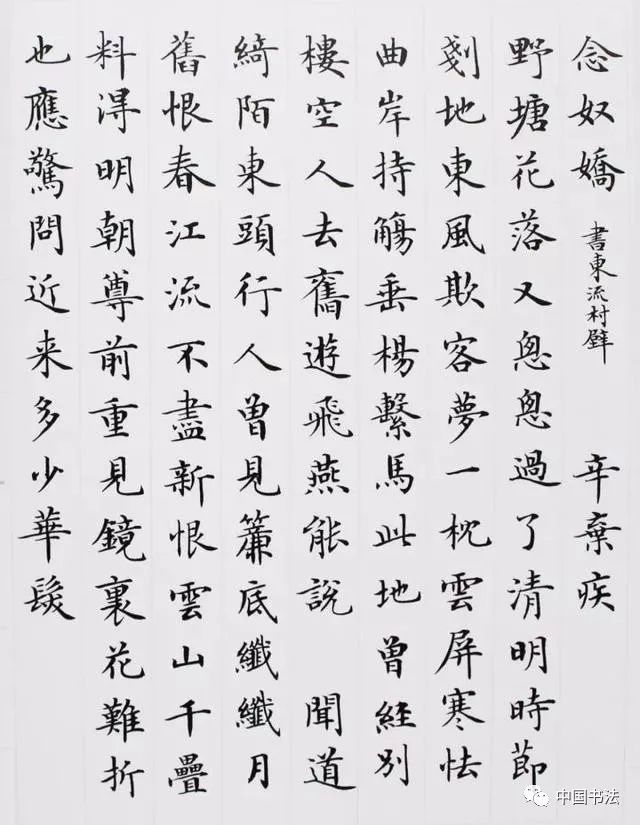 念奴嬌 書東流村壁 辛棄疾
野塘花落又怱怱過了清明時節
剗地東風欺客夢一枕雲屏寒怯
曲岸持觴垂楊繫馬此地曾經別
樓空人去舊遊飛燕能說 聞道
綺陌東頭行人曾見簾底纖纖月
舊恨春江流不盡新恨雲山千疊
料得明朝尊前重見鏡裏花難折
也應驚問近来多少華髮
中国书法